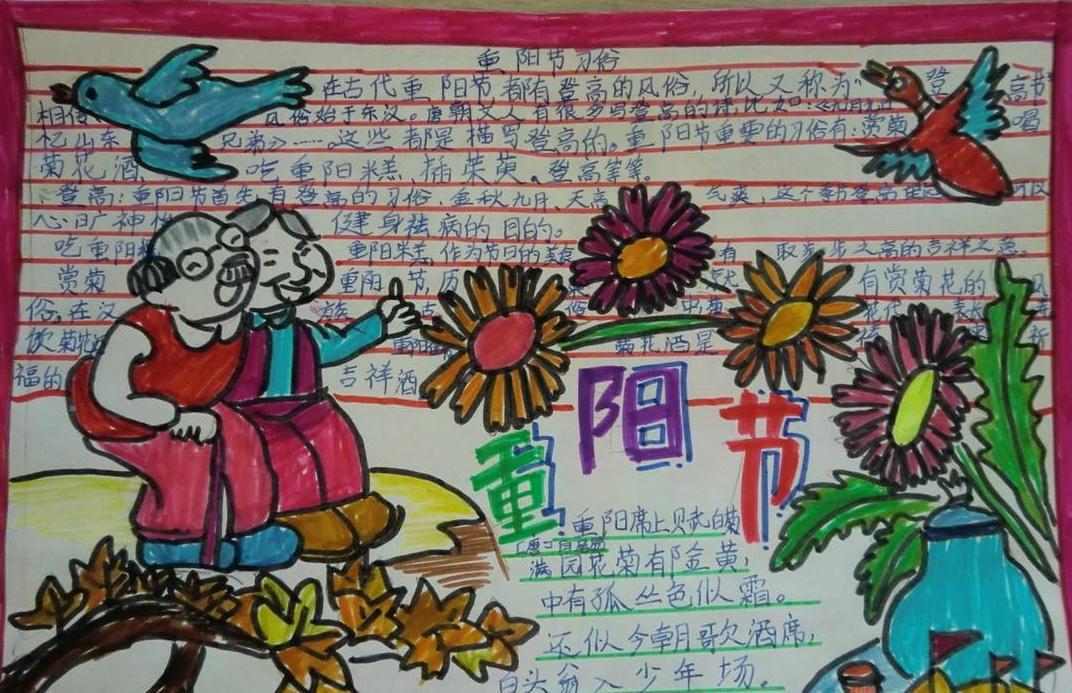 重阳节习俗
在古代重阳节都有登高的风俗，所以又称为"登高节"
相传 风俗始于东汉。唐朝文人有很多写登高的诗比如：《九月九日
忆山东 兄弟》……。这些都是描写登高的。重阳节重要的习俗有：赏菊 喝
菊花酒 吃重阳糕、插茱萸、登高等等。
登高：重阳节首先有登高的习俗，金秋九月，天高 气爽，这个季节登高 可以
心旷神怡 健身祛病的目的。
吃重阳糕 重阳糕作为节日的美食 有 取步步之高的吉祥之意。
赏菊 重阳节历 就 有赏菊花的 风
俗，在汉 族 古 俗
饮菊花酒 重阳 菊花酒是 祈
福的 吉祥酒
重阳节
重阳席上赋白菊
［唐］白居易
满园花菊郁金黄，
中有孤丛色似霜。
还似今朝歌酒席，
白头翁入少年场。